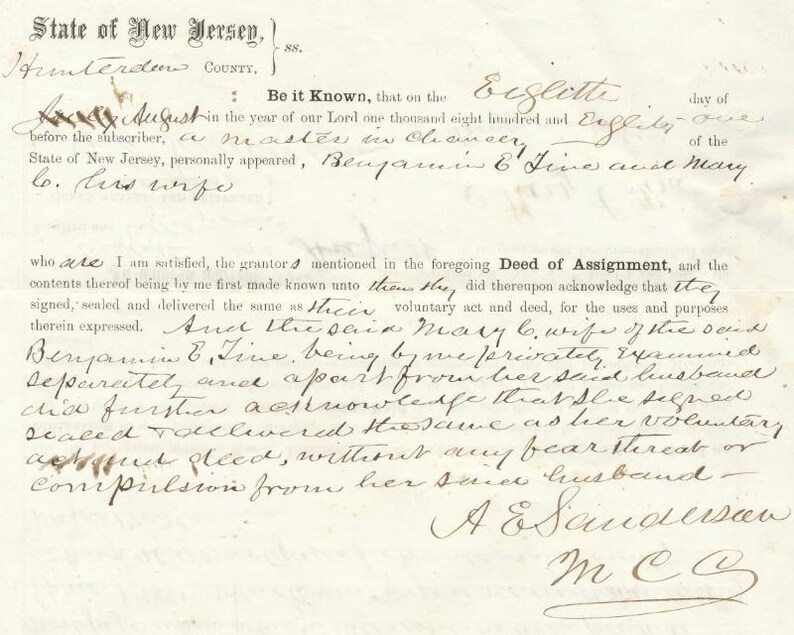 State of New Jersey, } ss.
Hunterdon COUNTY,
Be it Known, that on the Eighth day of
August in the year of our Lord one thousand eight hundred and Eighty-one
before the subscriber, a master in chancery of the
State of New Jersey, personally appeared, Benjamin E Tine and Mary
C. his wife
who are I am satisfied, the grantors mentioned in the foregoing Deed of Assignment, and the
contents thereof being by me first made known unto them they did thereupon acknowledge that they
signed, sealed and delivered the same as their voluntary act and deed, for the uses and purposes
therein expressed. And the said Mary C. wife of the said
Benjamin E. Tine, being by me privately Examined
separately and apart from her said husband
did further acknowledge that she signed
sealed & delivered the same as her voluntary
act and deed, without any fear threat or
compulsion from her said husband –
A E Sanderson
M C C